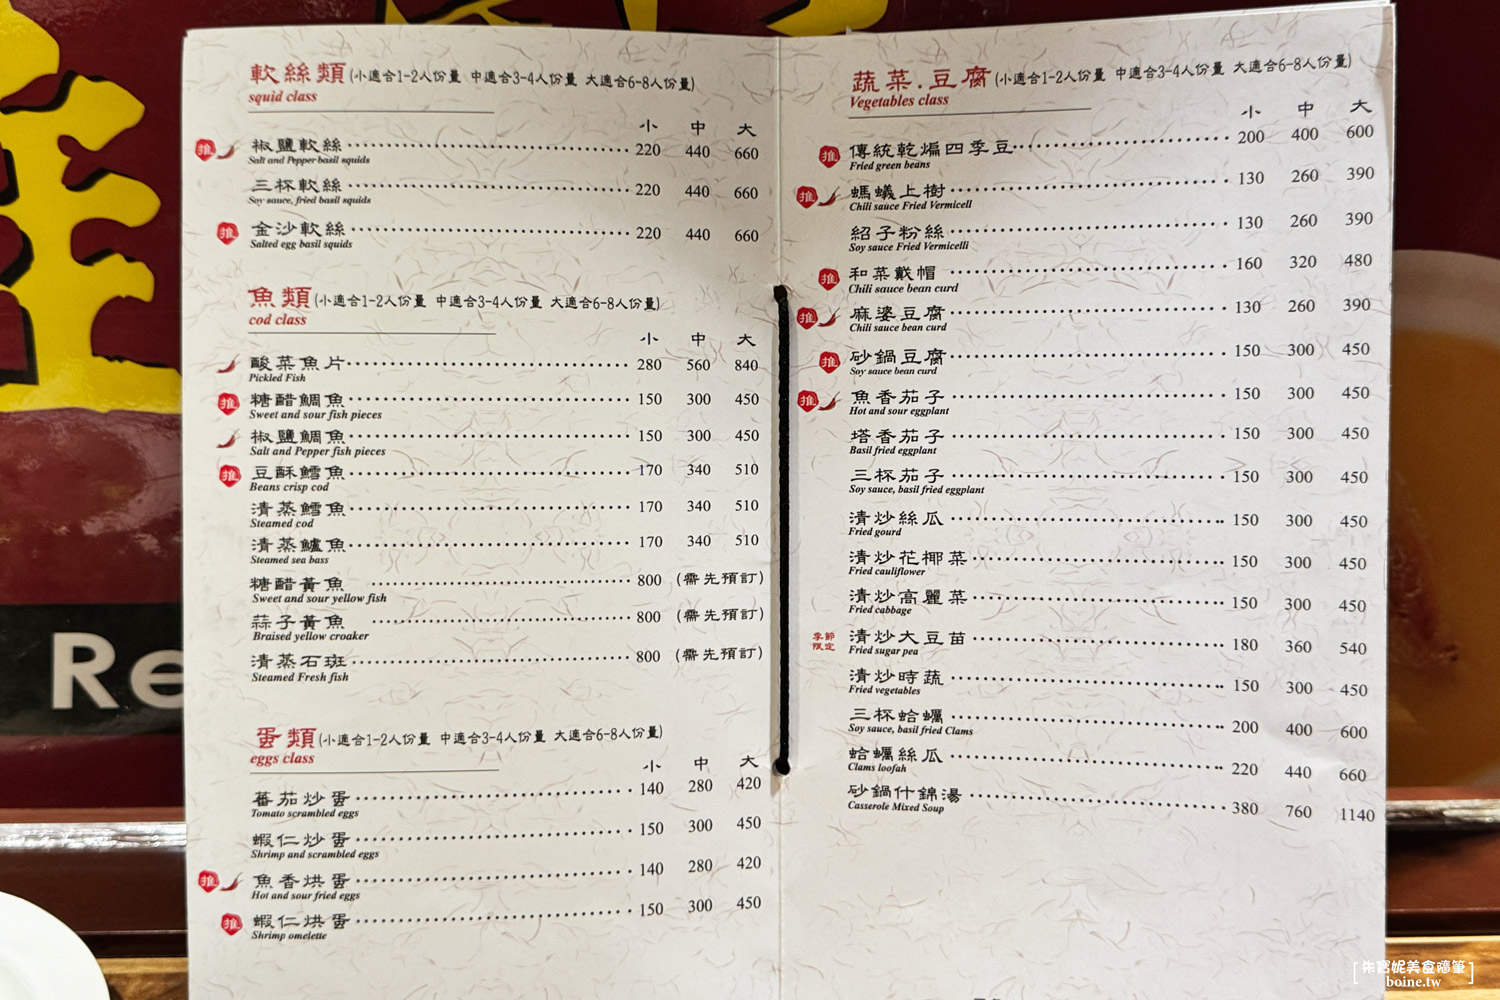 軟絲類(小適合1-2人份量 中適合3-4人份量 大適合6-8人份量)
squid class
小 中 大
推 椒鹽軟絲 220 440 660
Salt and Pepper basil squids
三杯軟絲 220 440 660
Soy sauce, fried basil squids
推 金沙軟絲 220 440 660
Salted egg basil squids
魚類(小適合1-2人份量 中適合3-4人份量 大適合6-8人份量)
cod class
小 中 大
酸菜魚片 280 560 840
Pickled Fish
推 糖醋鯛魚 150 300 450
Sweet and sour fish pieces
椒鹽鯛魚 150 300 450
Salt and Pepper fish pieces
推 豆酥鱈魚 170 340 510
Beans crisp cod
清蒸鱈魚 170 340 510
Steamed cod
清蒸鱸魚 170 340 510
Steamed sea bass
糖醋黃魚 800 (需先預訂)
Sweet and sour yellow fish
蒜子黃魚 800 (需先預訂)
Braised yellow croaker
清蒸石斑 800 (需先預訂)
Steamed Fresh fish
蛋類(小適合1-2人份量 中適合3-4人份量 大適合6-8人份量)
eggs class
小 中 大
蕃茄炒蛋 140 280 420
Tomato scrambled eggs
蝦仁炒蛋 150 300 450
Shrimp and scrambled eggs
推 魚香烘蛋 140 280 420
Hot and sour fried eggs
推 蝦仁烘蛋 150 300 450
Shrimp omelette
蔬菜.豆腐(小適合1-2人份量 中適合3-4人份量 大適合6-8人份量)
Vegetables class
小 中 大
推 傳統乾煸四季豆 200 400 600
Fried green beans
推 螞蟻上樹 130 260 390
Chili sauce Fried Vermicell
紹子粉絲 130 260 390
Soy sauce Fried Vermicelli
推 和菜戴帽 160 320 480
Chili sauce bean curd
推 麻婆豆腐 130 260 390
Chili sauce bean curd
推 砂鍋豆腐 150 300 450
Soy sauce bean curd
推 魚香茄子 150 300 450
Hot and sour eggplant
塔香茄子 150 300 450
Basil fried eggplant
三杯茄子 150 300 450
Soy sauce, basil fried eggplant
清炒絲瓜 150 300 450
Fried gourd
清炒花椰菜 150 300 450
Fried cauliflower
清炒高麗菜 150 300 450
Fried cabbage
季節限定 清炒大豆苗 180 360 540
Fried sugar pea
清炒時蔬 150 300 450
Fried vegetables
三杯蛤蠣 200 400 600
Soy sauce, basil fried Clams
蛤蠣絲瓜 220 440 660
Clams loofah
砂鍋什錦湯 380 760 1140
Casserole Mixed Soup
Re
[朱寶妮美食隨筆]
boine.tw